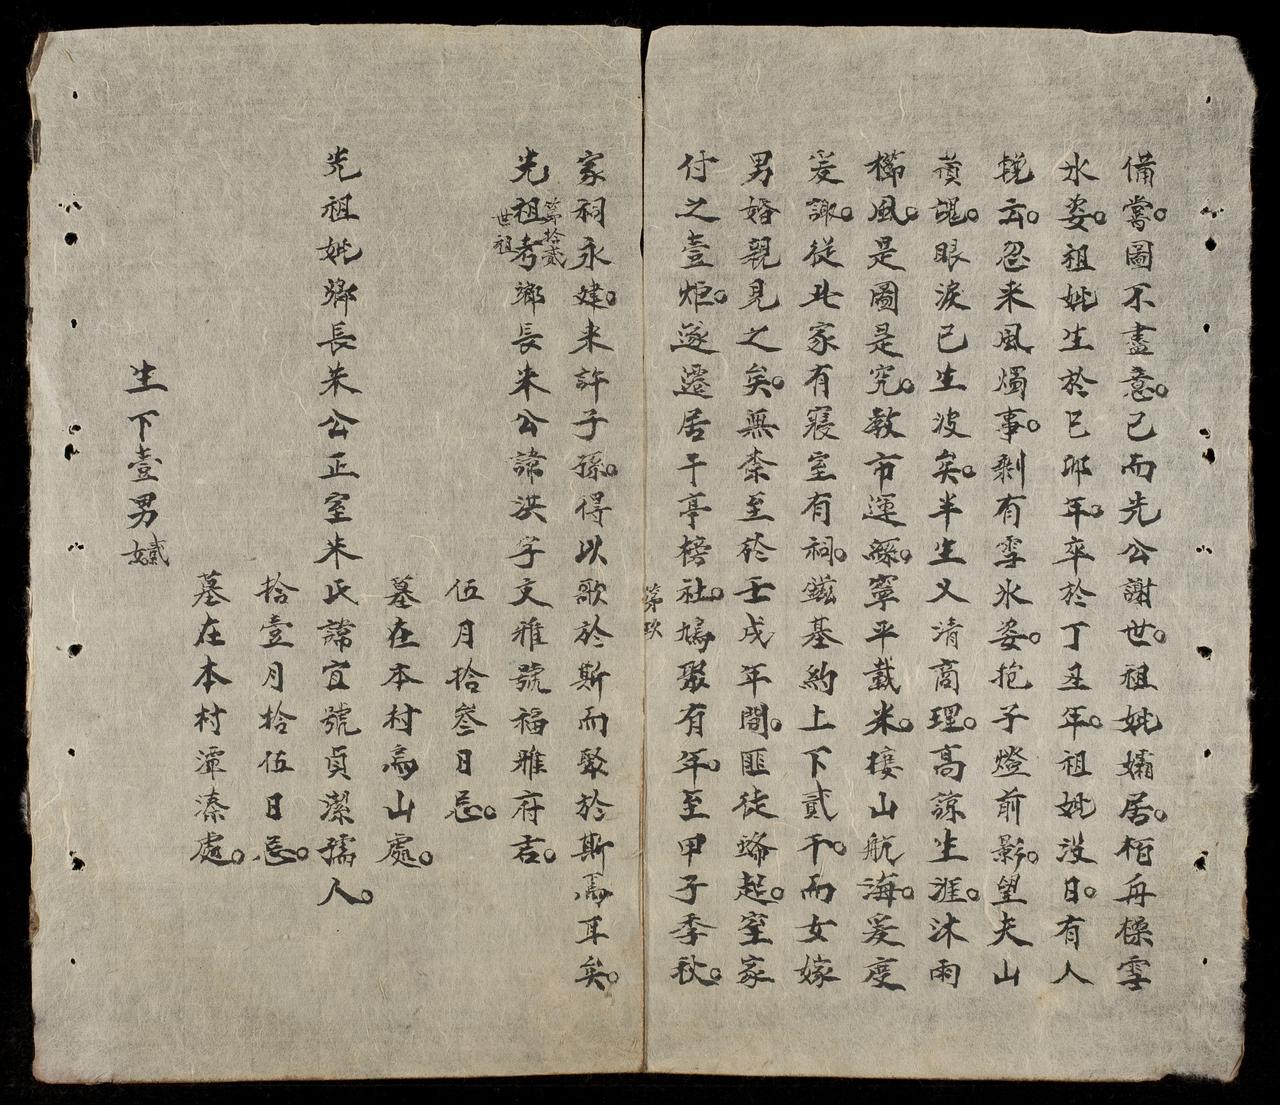 備嘗。圖不盡意。已而先公謝世。祖妣孀居。栢舟操雪
氷姿。祖妣生於已卯年。卒於丁丑年。祖妣沒日。有人
輓云。忽来風燭事。剩有雪氷姿。抱子燈前影。望夫山
賁魄。眼淚已生波矣。半生义清商理。高諒生涯。沐雨
櫛風。是圖是究。教市運繇。寧平載米。樓山航海。爰度
爰諏。從此家有寢室有祠。鎡基約上下貳千。而女嫁
男婚親見之矣。無柰至於壬戌年間。匪徒蜂起。室家
付之壹炬。遂遷居千亭榜社。鳩聚有年。至甲子季秋。
第玖
家祠永建。来許子孫。得以歌於斯而聚於斯焉耳矣。
第拾貳世祖
先祖考鄉長朱公諱洪字文雅號福雅府君。
伍月拾叄日忌。
墓在本村烏山處。
先祖妣鄉長朱公正室朱氏諱宜號貞潔孺人。
拾壹月拾伍日忌。
墓在本村潭溱處。
生下壹男貳女